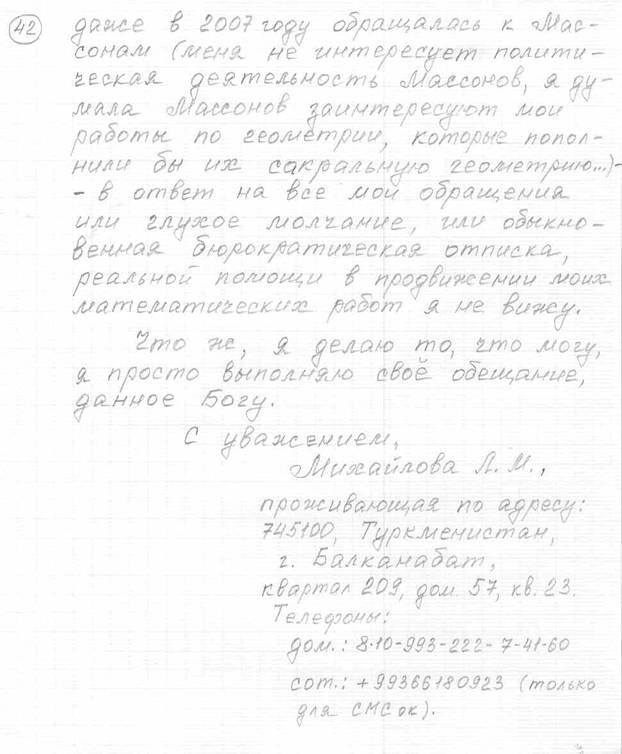 42
даже в 2007 году обращалась к Мас-
сонам (меня не интересует полити-
ческая деятельность Массонов, я ду-
мала Массонов заинтересуют мои
работы по геометрии, которые попол-
нили бы их сакральную геометрию...)-
- в ответ на все мои обращения
или глухое молчание, или обыкно-
венная бюрократическая отписка,
реальной помощи в продвижении моих
математических работ я не вижу.
Что ж, я делаю то, что могу,
я просто выполняю своё обещание,
данное Богу.
С уважением,
Михайлова Л.М.,
проживающая по адресу:
745100, Туркменистан,
г. Балканабат,
квартал 209, дом 57, кв. 23.
Телефоны:
дом.: 8-10-993-222-7-41-60
сот.: +99366180923 (только
для СМСок).